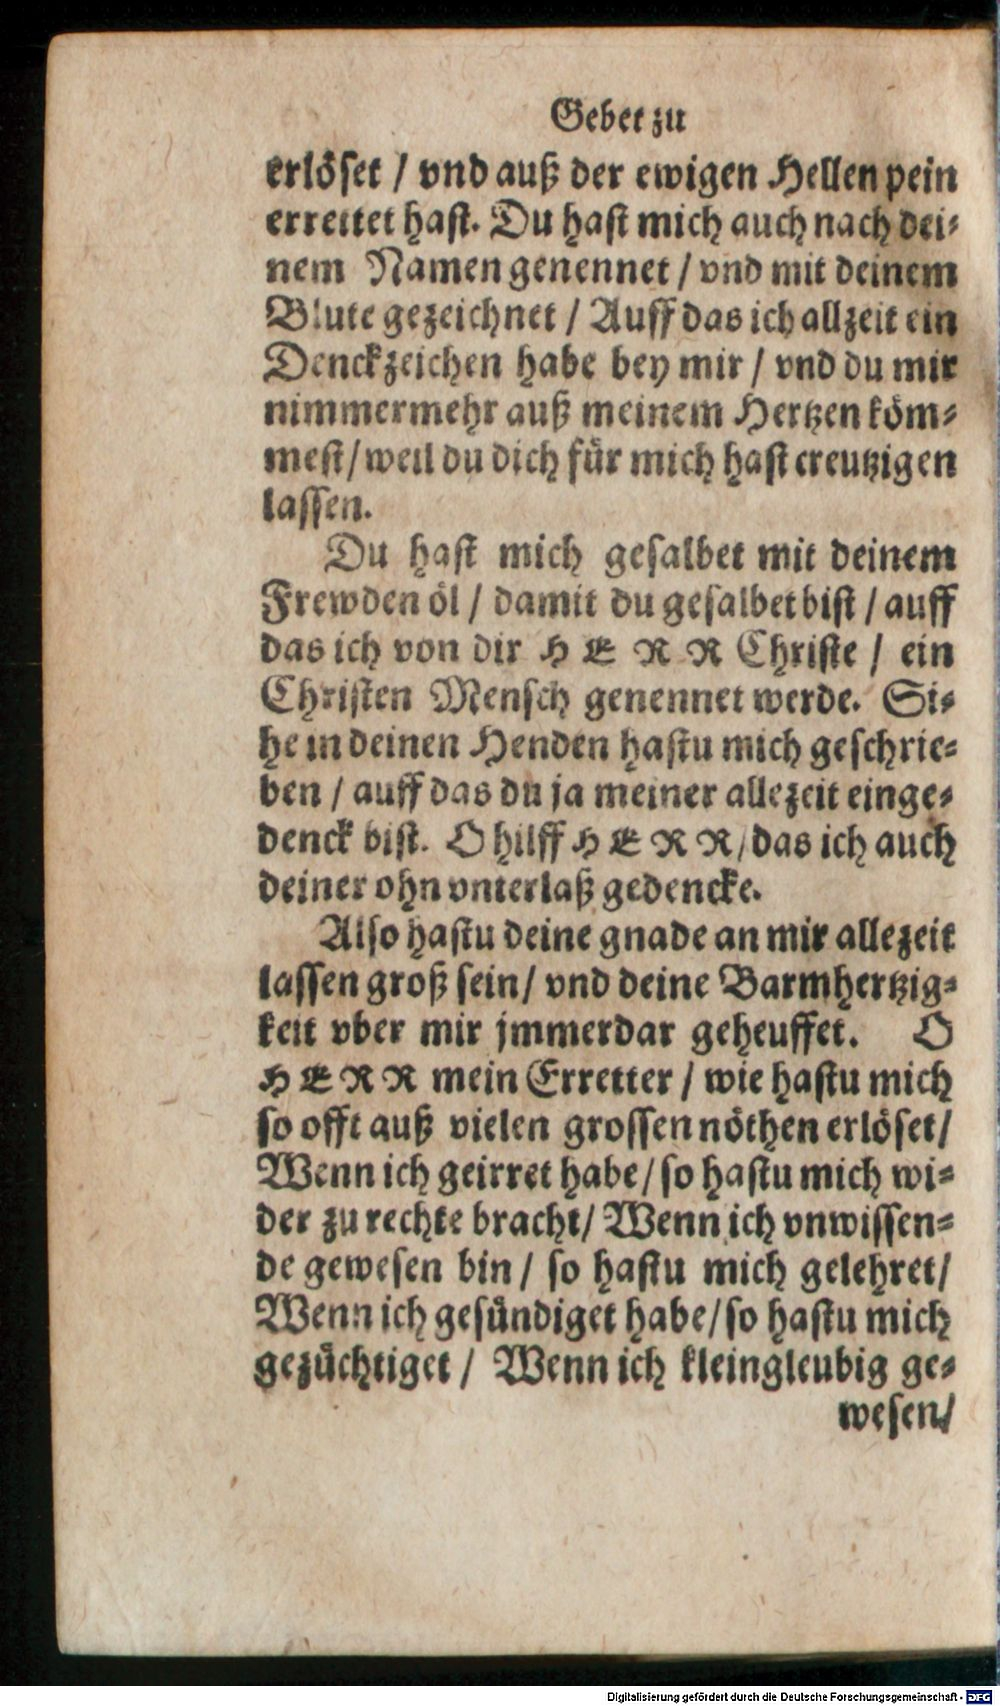 Gebet zu
erlöset / vnd auß der ewigen Hellen pein
errettet hast. Du hast mich auch nach dei-
nem Namen genennet / vnd mit deinem
Blute gezeichnet / Auff das ich allzeit ein
Denckzeichen habe bey mir / vnd du mir
nimmermehr auß meinem Hertzen köm-
mest/ weil du dich für mich hast creutzigen
lassen.
Du hast mich gesalbet mit deinem
Frewden öl / damit du gesalbet bist / auff
das ich von dir HERR Christe / ein
Christen Mensch genennet werde. Si-
he in deinen Henden hastu mich geschrie-
ben / auff das du ja meiner allezeit einge-
denck bist. O hilff HERR/ das ich auch
deiner ohn vnterlaß gedencke.
Also hastu deine gnade an mir allezeit
lassen groß sein/ vnd deine Barmhertzig-
keit vber mir jmmerdar geheuffet. O
HERR mein Erretter / wie hastu mich
so offt auß vielen grossen nöthen erlöset/
Wenn ich geirret habe/ so hastu mich wi-
der zu rechte bracht/ Wenn ich vnwissen-
de gewesen bin / so hastu mich gelehret/
Wenn ich gesündiget habe/ so hastu mich
gezüchtiget / Wenn ich kleingleubig ge-
wesen/
Digitalisierung gefördert durch die Deutsche Forschungsgemeinschaft - DFG